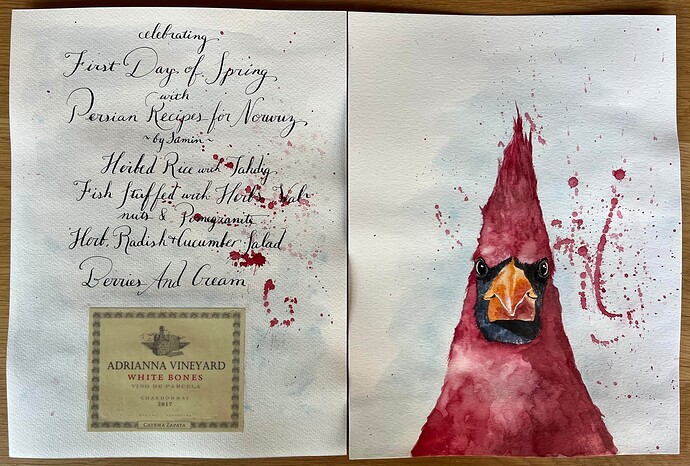 celebrating
First Day of Spring
with
Persian Recipes for Norwuz
~by Samin~
Herbed Rice with Tahdig
Fish Stuffed with Herbs, Wal-
nuts & Pomegranite
Herb, Radish & Cucumber Salad
Berries And Cream
ADRIANNA VINEYARD
WHITE BONES
VINO DE PARCELA
CHARDONNAY
2017
CATENA ZAPATA